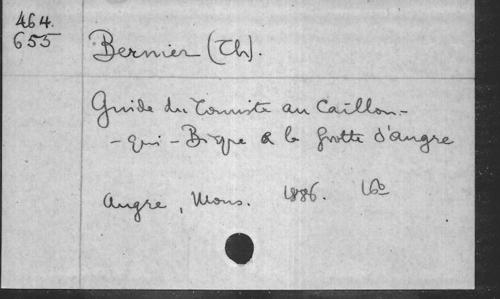 464.
655
Bernier (Th).
Guide du Touriste au Caillou-
-qui-Bique & la grotte d'angre
Angre, Mons. 1886.